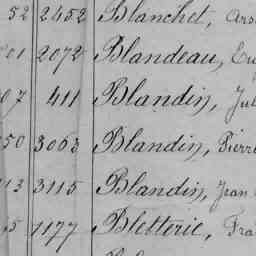 52 2452 Blanchet, Ars
01 2072 Blandeau, Eu
07 411 Blandin, Jul
50 3063 Blandin, Pierre
13 3115 Blandin, Jean
5 1177 Bletterie, Fra